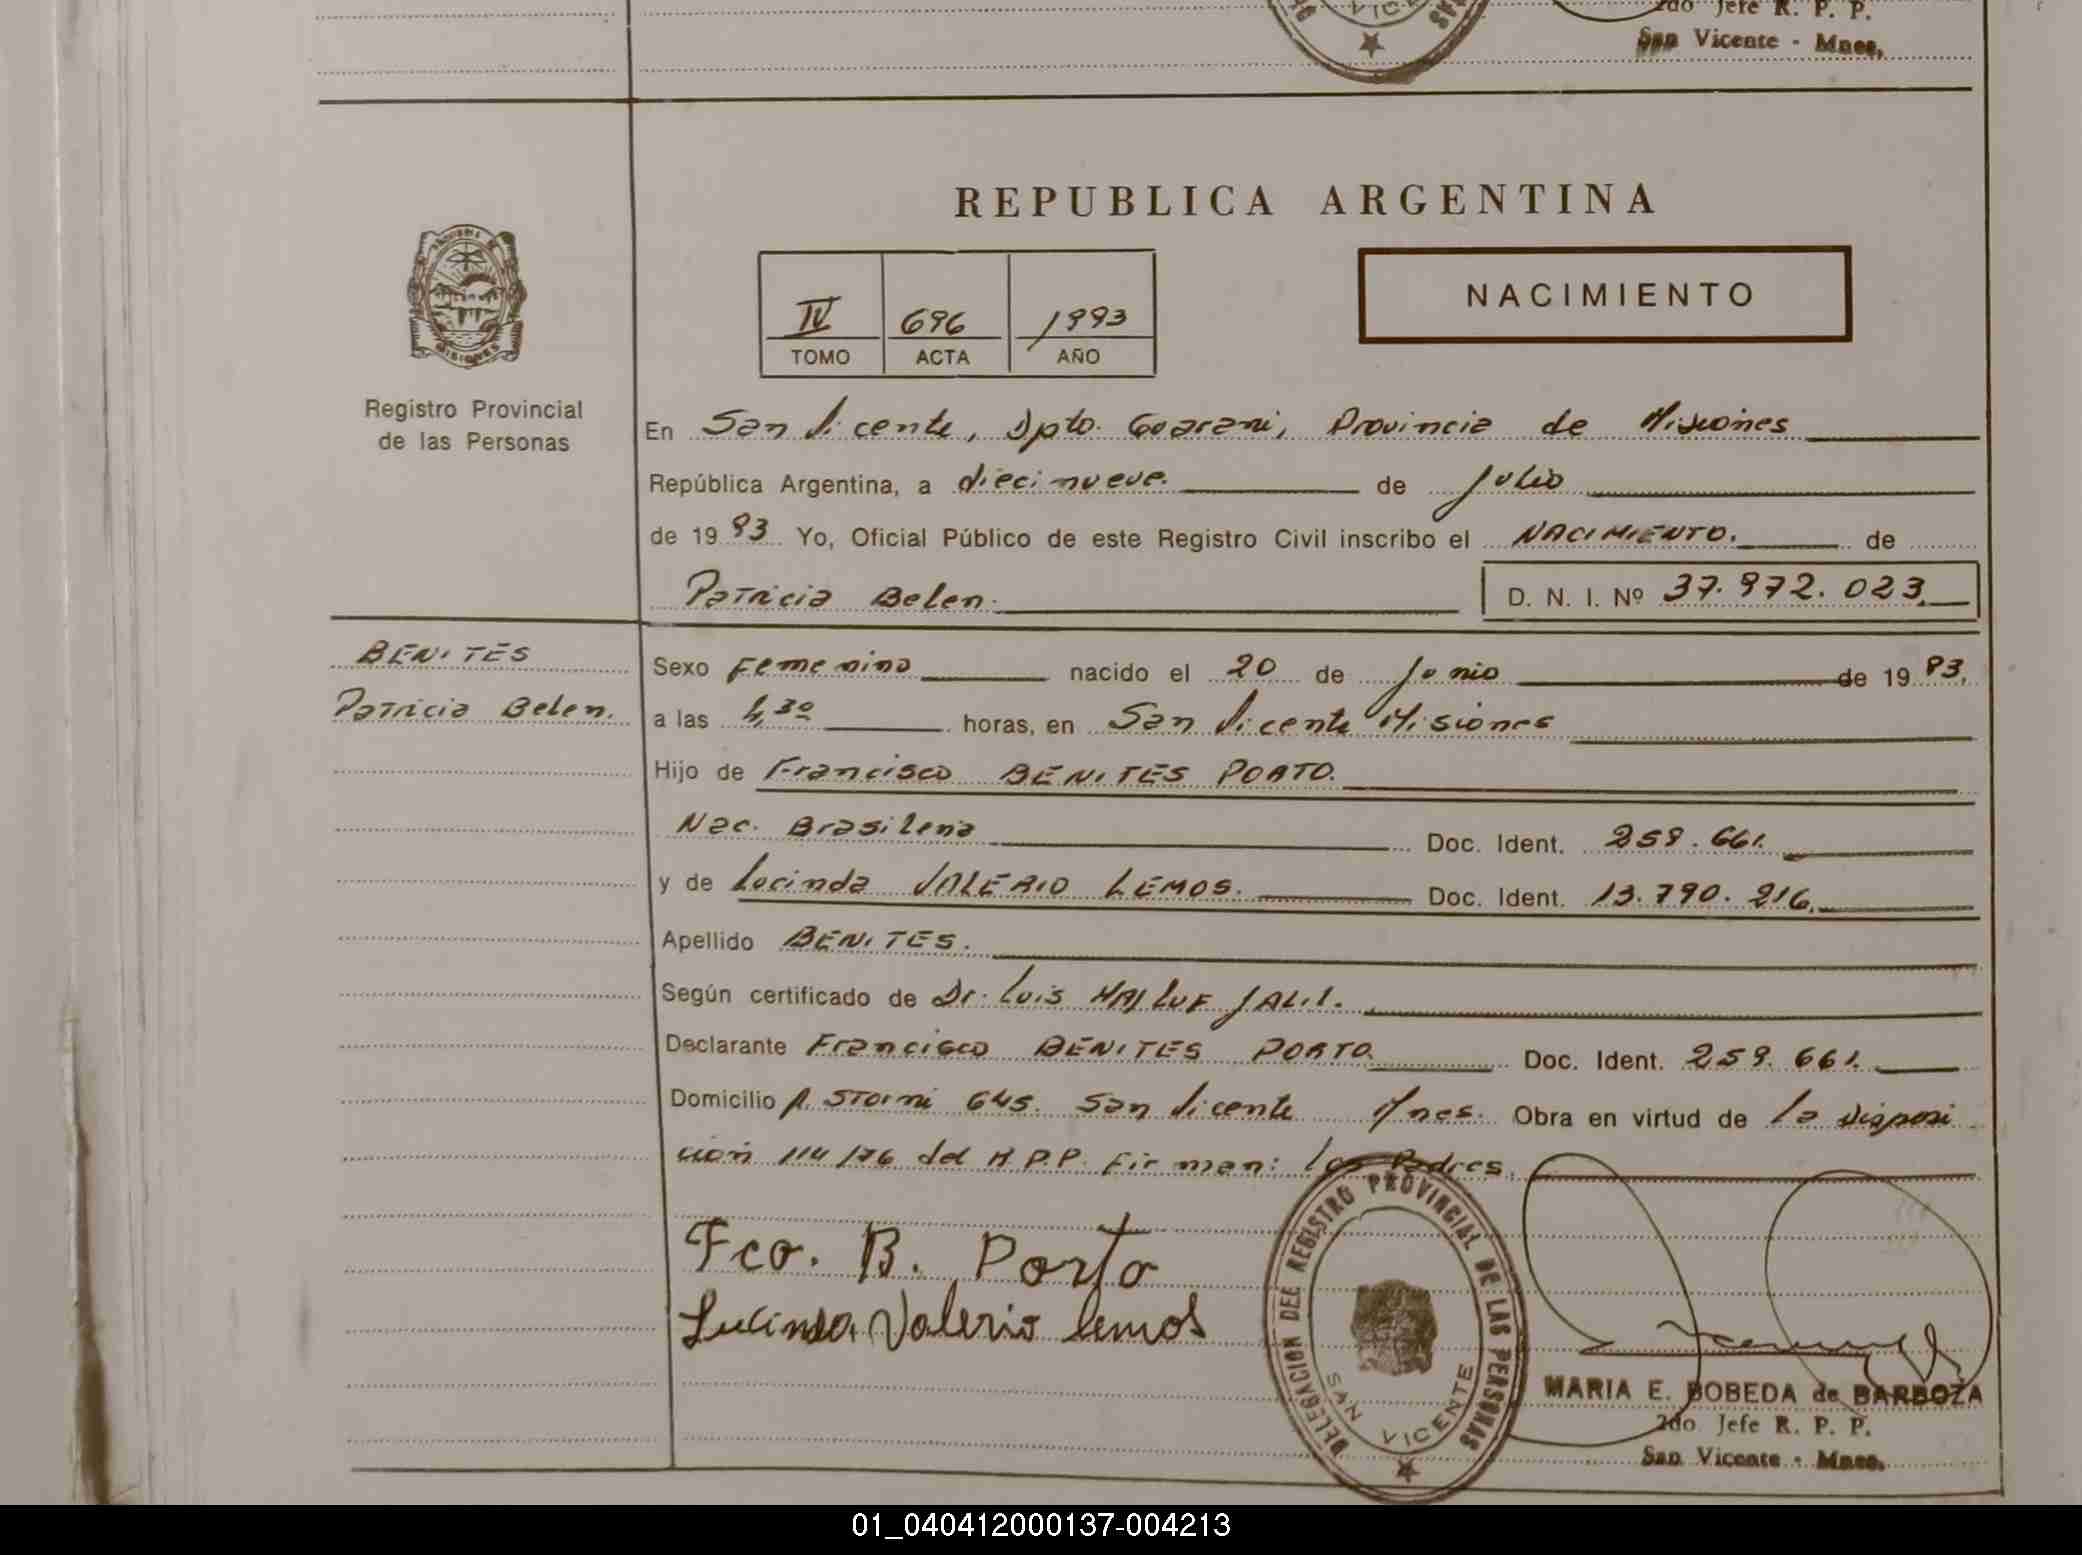 2do Jefe R. P. P.
San Vicente - Mnes,
REPUBLICA ARGENTINA
NACIMIENTO
IV 696 1993
TOMO ACTA AÑO
MISIONES
Registro Provincial
de las Personas
En San Vicente, Dpto. Guarani, Provincia de Misiones
República Argentina, a diecinueve. de Julio
de 19 93 Yo, Oficial Público de este Registro Civil inscribo el NACIMIENTO. de
Patricia Belen. D. N. I. Nº 37.972.023
BENITES
Patricia Belen.
Sexo Femenino nacido el 20 de Junio de 19 93,
a las 4,30 horas, en San Vicente Misiones
Hijo de Francisco BENITES PORTO.
Nac. Brasilena Doc. Ident. 259.661.
y de Lucinda VALERIO LEMOS. Doc. Ident. 13.790.216,
Apellido BENITES.
Según certificado de Dr. Luis MAJLUF JALIL.
Declarante Francisco BENITES PORTO Doc. Ident. 259.661.
Domicilio A. STORNI 645. San Vicente Mnes. Obra en virtud de la disposi
ción 114/76 del R.P.P. Firman: los Padres,
Fco. B. Porto
Lucinda Valerio Lemos
DELEGACION DEL REGISTRO PROVINCIAL DE LAS PERSONAS
SAN VICENTE
MARIA E. BOBEDA de BARBOZA
2do. Jefe R. P. P.
San Vicente - Mnes.
01_040412000137-004213